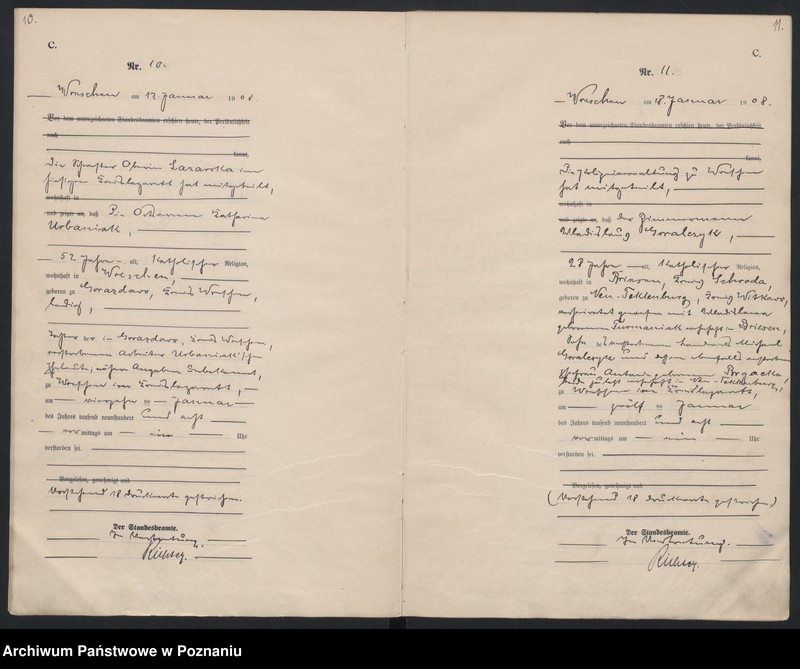 10.
C.
Nr. 10.
Wreschen am 17. Januar 1908.
Vor dem unterzeichneten Standesbeamten erschien heute, der Persönlichkeit
nach
kannt,
Die Schwester Oberin Lazarska im
hiesigen Kreislazarett hat mitgeteilt,
wohnhaft in
und zeigte an, daß Die Ortsarme Katharina
Urbaniak,
52 Jahre alt, Katholischer Religion,
wohnhaft in Wreschen,
geboren zu Gorazdowo, Kreis Wreschen,
ledig,
Tochter der in Gorazdowo, Kreis Wreschen,
verstorbenen Arbeiter Urbaniak'schen
Eheleute, nähere Angaben unbekannt,
zu Wreschen im Kreislazarett,
am vierzehn Januar
des Jahres tausend neunhundert und acht
vormittags um ein Uhr
verstorben sei.
Vorgelesen, genehmigt und
Vorstehend 18 Druckworte gestrichen.
Der Standesbeamte.
In Vertretung.
11.
C.
Nr. 11.
Wreschen am 18. Januar 1908.
Vor dem unterzeichneten Standesbeamten erschien heute, der Persönlichkeit
nach
kannt,
Die Polizeiverwaltung zu Wreschen
hat mitgeteilt,
wohnhaft in
und zeigte an, daß der Zimmermann
Wladislaus Goralczyk,
28 Jahre alt, Katholischer Religion,
wohnhaft in Briesen, Kreis Schroda,
geboren zu Neu-Tecklenburg, Kreis Witkowo,
verheiratet gewesen mit Wladislawa
geborenen Furmaniak wohnhaft in Briesen,
Sohn des verstorbenen Michael
Goralczyk und dessen ebenfalls verstorbenen
Ehefrau Antonie geborenen
beide zuletzt wohnhaft in Neu-Tecklenburg,
zu Wreschen im Kreislazarett,
am zwölf Januar
des Jahres tausend neunhundert und acht
vormittags um neun Uhr
verstorben sei.
Vorgelesen, genehmigt und
(Vorstehend 18 Druckworte gestrichen)
Der Standesbeamte.
In Vertretung.
Archiwum Państwowe w Poznaniu